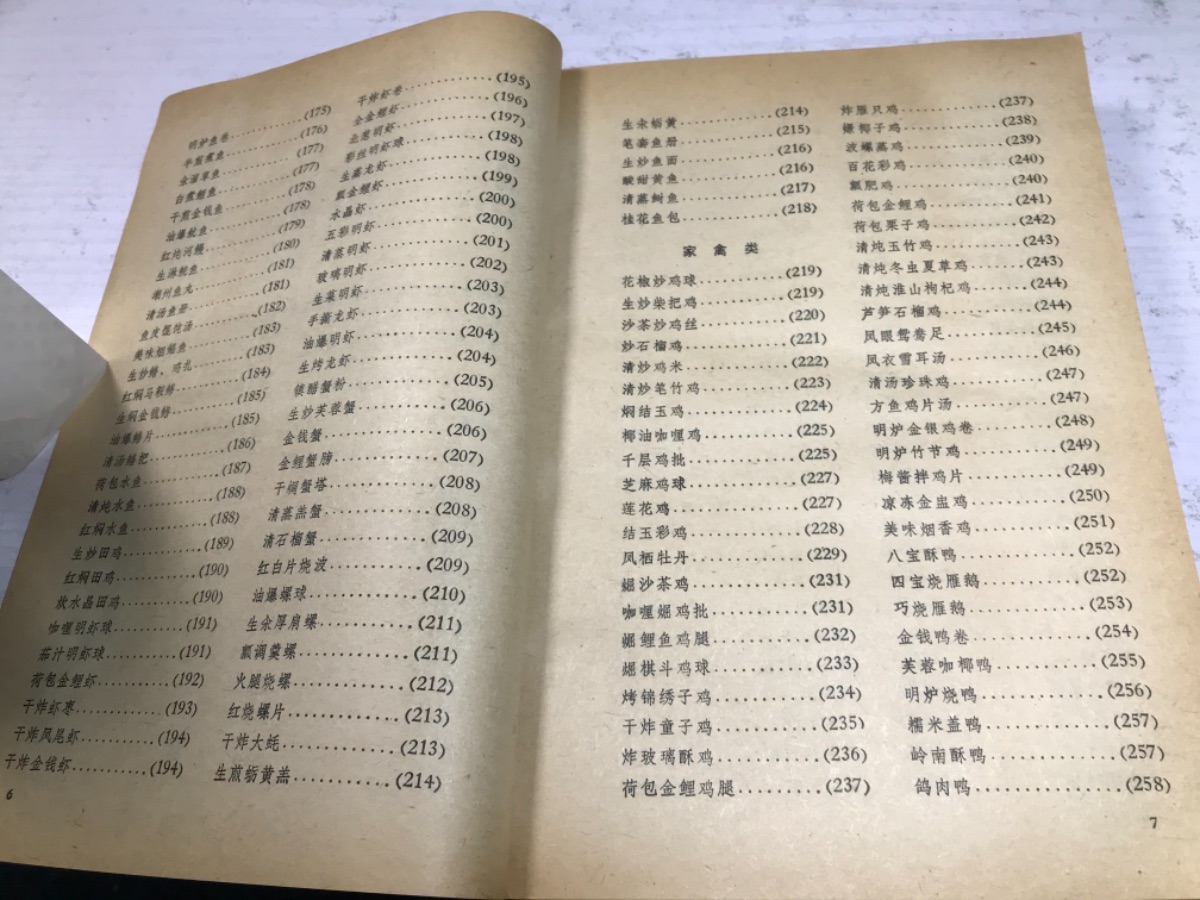 明炉鱼卷……(175)
半煎煮鱼……(176)
白煮鲤鱼……(177)
干煎金钱鱼……(178)
油爆鱿鱼……(178)
红炖河鳗……(179)
生淋鲩鱼……(180)
潮州鱼丸……(181)
清汤鱼册……(181)
鱼皮馄饨汤……(182)
美味烟鲳鱼……(183)
生炒鳝、鸡扎……(183)
红焖马鞍鳝……(184)
生焖金钱鳝……(185)
油爆鳝片……(185)
清汤鳝把……(186)
荷包水鱼……(187)
清炖水鱼……(188)
红焖水鱼……(188)
生炒田鸡……(189)
红焖田鸡……(190)
炊水晶田鸡……(190)
咖喱明虾球……(191)
茄汁明虾球……(191)
荷包金鲤虾……(192)
干炸虾枣……(193)
干炸凤尾虾……(194)
干炸金钱虾……(194)
6
干炸虾卷……(195)
全金鲤虾……(196)
彩丝明虾球……(198)
生蒸龙虾……(198)
瓤金鲤虾……(199)
水晶虾……(200)
五彩明虾……(200)
清蒸明虾……(201)
玻璃明虾……(202)
生菜明虾……(203)
手撕龙虾……(203)
油爆明虾……(204)
生烤龙虾……(204)
镇醋蟹粉……(205)
生炒芙蓉蟹……(206)
金钱蟹……(206)
金鲤蟹膀……(207)
干焗蟹塔……(208)
清蒸羔蟹……(208)
清石榴蟹……(209)
红白片烧波……(209)
油爆螺球……(210)
生氽厚肩螺……(211)
瓢调羹螺……(211)
火腿烧螺……(212)
红烧螺片……(213)
干炸大蚝……(213)
生煎蛎黄羔……(214)
生氽蛎黄……(214)
笔套鱼册……(215)
生炒鱼面……(216)
酸甜黄鱼……(216)
清蒸鲥鱼……(217)
桂花鱼包……(218)
家禽类
花椒炒鸡球……(219)
生炒柴把鸡……(219)
沙茶炒鸡丝……(220)
炒石榴鸡……(221)
清炒鸡米……(222)
清炒笔竹鸡……(223)
焖结玉鸡……(224)
椰油咖喱鸡……(225)
千层鸡批……(225)
芝麻鸡球……(227)
莲花鸡……(227)
结玉彩鸡……(228)
凤栖牡丹……(229)
焗沙茶鸡……(231)
咖喱焗鸡批……(231)
焗鲤鱼鸡腿……(232)
焗棋斗鸡球……(233)
烤锦绣子鸡……(234)
干炸童子鸡……(235)
炸玻璃酥鸡……(236)
荷包金鲤鸡腿……(237)
炸雁只鸡……(237)
嫩椰子鸡……(238)
波螺蒸鸡……(239)
百花彩鸡……(240)
瓤肥鸡……(240)
荷包金鲤鸡……(241)
荷包栗子鸡……(242)
清炖玉竹鸡……(243)
清炖冬虫夏草鸡……(243)
清炖淮山枸杞鸡……(244)
芦笋石榴鸡……(244)
凤眼鸳鸯足……(245)
凤衣雪耳汤……(246)
清汤珍珠鸡……(247)
方鱼鸡片汤……(247)
明炉金银鸡卷……(248)
明炉竹节鸡……(249)
梅酱拌鸡片……(249)
凉冻金盅鸡……(250)
美味烟香鸡……(251)
八宝酥鸭……(252)
四宝烧雁鹅……(252)
巧烧雁鹅……(253)
金钱鸭卷……(254)
芙蓉咖椰鸭……(255)
明炉烧鸭……(256)
糯米盖鸭……(257)
岭南酥鸭……(257)
鸽肉鸭……(258)
7